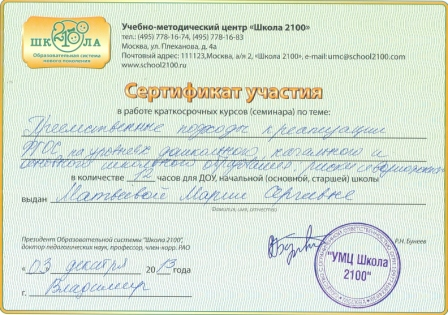 ШКОЛА
2100
Образовательная система
нового поколения
Учебно-методический центр «Школа 2100»
тел.: (495) 778-16-74, (495) 778-16-83
Москва, ул. Плеханова, д. 4а
Почтовый адрес: 111123,Москва, а/я 2, «Школа 2100», e-mail: umc@school2100.com
www.school2100.ru
Сертификат участия
в работе краткосрочных курсов (семинара) по теме:
Преемственные подходы к реализации
ФГОС на уровнях дошкольного, начального и
основного школьного образования:
в количестве 12 часов для ДОУ, начальной (основной, старшей) школы
выдан Матвеевой Марии Сергеевне
Фамилия, имя, отчество
Президент Образовательной системы "Школа 2100",
доктор педагогических наук, профессор, член-корр. РАО
Р.Н. Бунеев
« 03 » декабря 2013 года
г. Владимир
"УМЦ Школа
2100"